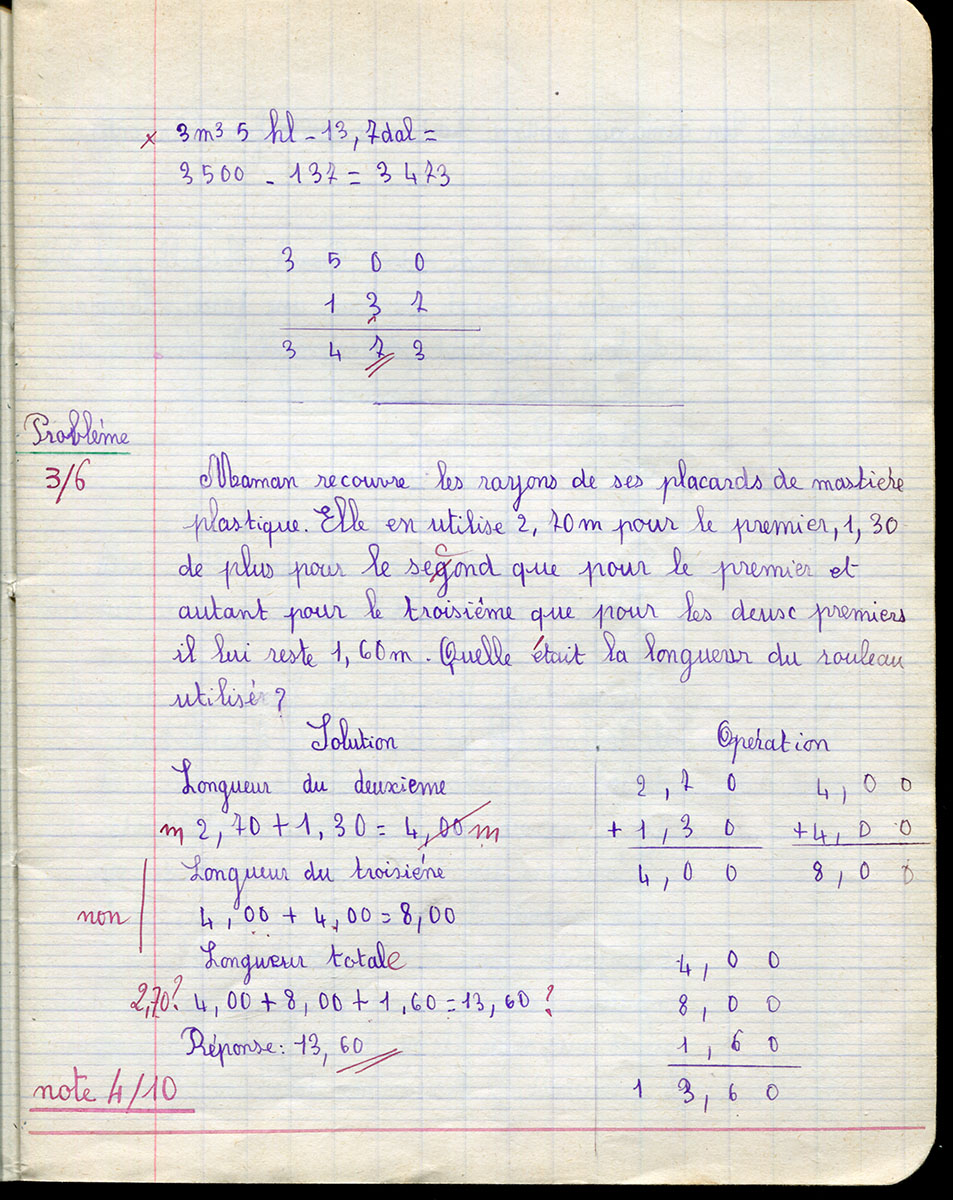 x 3m3 5 hl - 13,7dal =
3500 - 137 = 3473
3 5 0 0
1 3 7
3 4 7 3
Problème
3/6
Maman recouvre les rayons de ses placards de mastière
plastique. Elle en utilise 2,70m pour le premier, 1,30
de plus pour le second que pour le premier et
autant pour le troisième que pour les deusc premiers
il lui reste 1,60m. Quelle était la longueur du rouleau
utilisé?
Solution
Longueur du deuxieme
m 2,70 + 1,30 = 4,00 m
Longueur du troisiéne
non
4,00 + 4,00 = 8,00
Longueur totale
2,70? 4,00 + 8,00 + 1,60 = 13,60 ?
Réponse: 13,60
note 4/10
Opération
2,70 4,00
+ 1,30 + 4,00
4,00 8,00
4,00
8,00
1,60
13,60